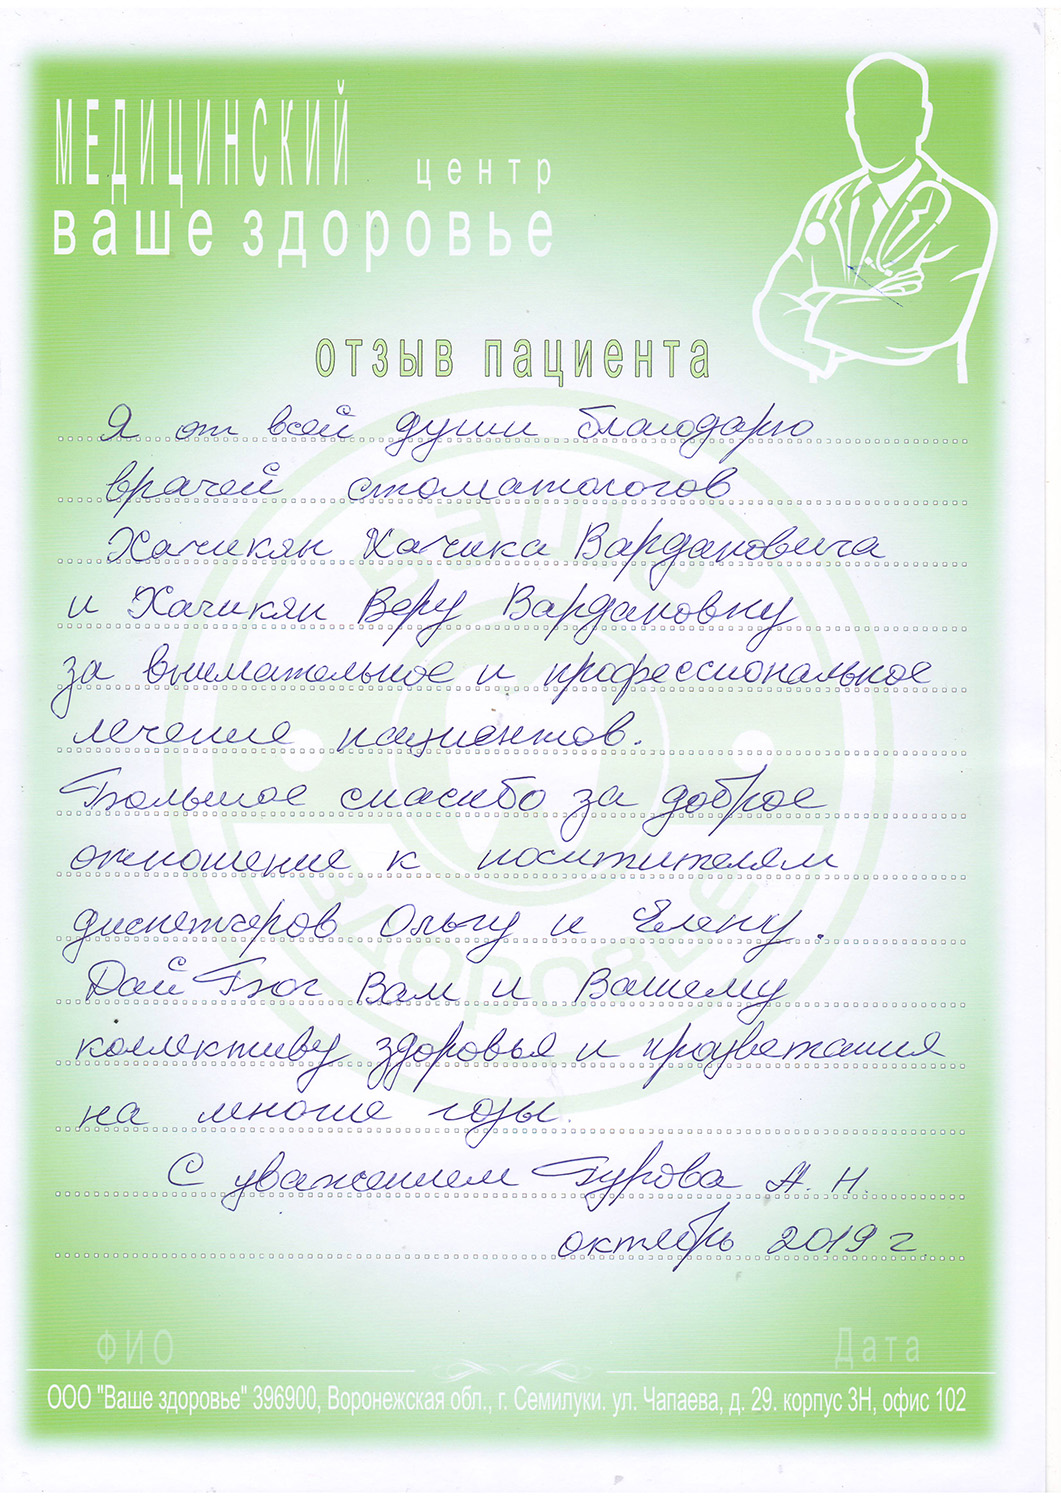 МЕДИЦИНСКИЙ центр
ваше здоровье
отзыв пациента
Я от всей души благодарю
врачей стоматологов
Хачикян Хачика Вардановича
и Хачикян Веру Вардановну
за внимательное и профессиональное
лечение пациентов.
Большое спасибо за доброе
отношение к поситителям
диспетчеров Ольгу и Елену.
Дай Бог Вам и Вашему
коллективу здоровья и процветания
на многие годы.
С уважением Бурова А. Н.
октябрь 2019 г.
ФИО Дата
ООО "Ваше здоровье" 396900, Воронежская обл., г. Семилуки. ул. Чапаева, д. 29. корпус 3Н, офис 102
ВАШЕ
ЗДОРОВЬЕ